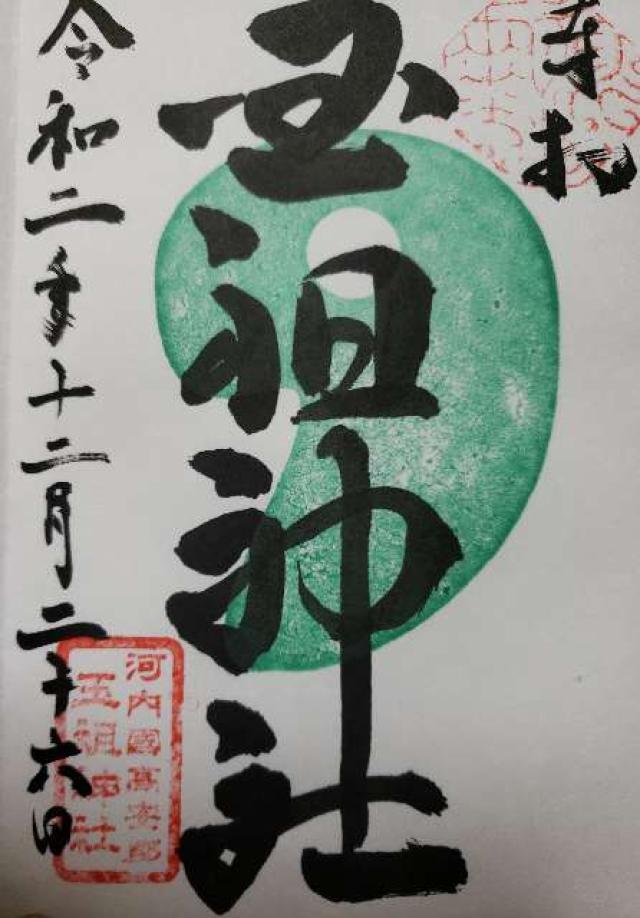 奉拝
玉祖神社
令和二年十二月二十六日
河内國高安郡
玉祖神社